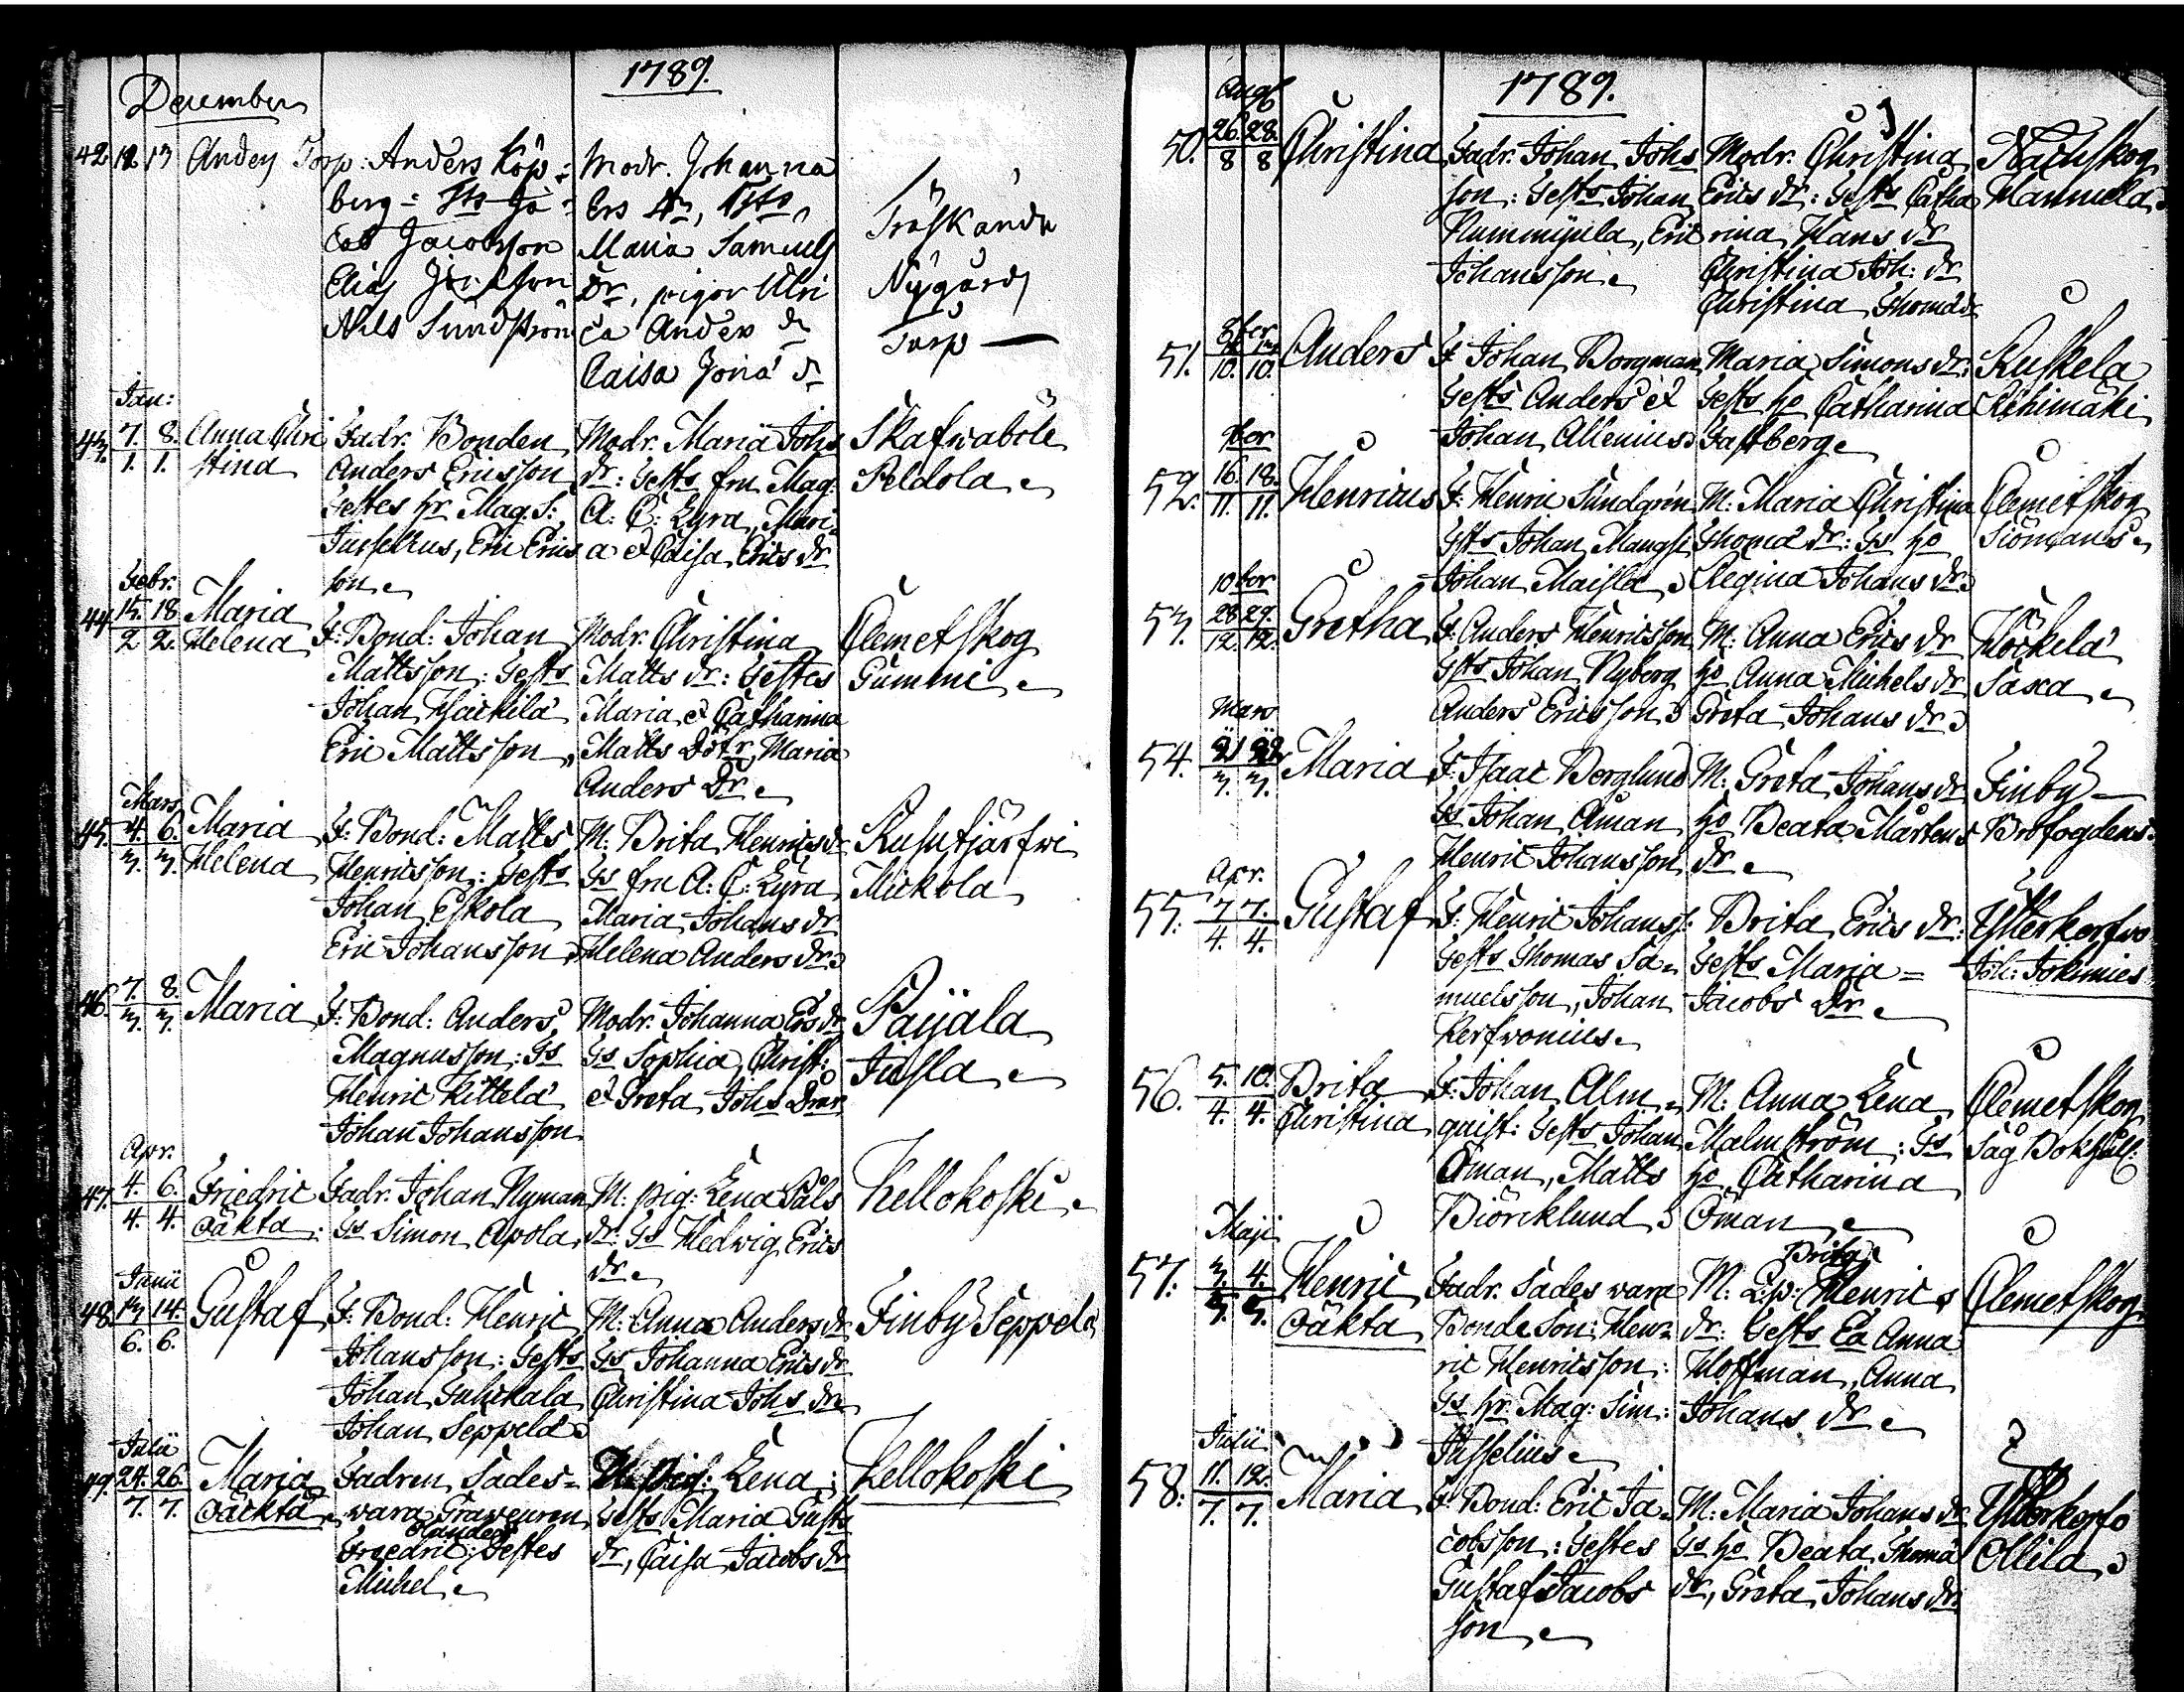 1789.
December
42 12 17 Anders Torp: Anders Köp=
berg = Fts Ja=
cob Jacobsson
Elias
Nils Sundström
Modr. Johanna
Ers dr,
Maria Samuels
dr, pigor Ulri
ca Anders dr
Caisa Jona dr
Träskända
Nygårds
Torp
Jan:
43. 7. 8. Anna Chri
1. 1. stina
Fadr. Bonden
Anders Ericsson
Festes hr Mag. S:
Jusselius, Eric Erics
son
Modr. Maria Johs
dr: Fests fru Mag:
A: C: Lyra, Mari=
a et Caisa Erics dr
Skafwaböle
Peldola
Febr.
44 15. 18 Maria
2 2. Helena
F: Bond: Johan
Mattsson: Fests
Johan Hackila
Eric Mattsson
Modr. Christina
Matts dr: Festes
Maria et Catharina
Matts Dötr, Maria
Anders Dr
Clemetskog
Gummi
Mars
45. 4. 6. Maria
3. 3. Helena
F: Bond: Matts
Henricsson: Fests
Johan Eskola
Eric Johansson
M: Brita Henrics dr
Fs fru A: C: Lyra
Maria Johans dr
Helena Anders dr
Rusutjärfwi
Mickola
46. 7. 8. Maria
3. 3.
F: Bond: Anders
Magnusson: Fs
Henric Kittelä
Johan Johansson
Modr. Johanna Ers dr
Fs Sophia Christ:
et Greta Johs Drar
Paijala
Jusla
Apr.
47. 4. 6. Friedric
4. 4. Oäkta
Fadr. Johan Nyman
Fs Simon Apola
M: pig: Lena Påls
dr: Fs Hedwig Erics
dr
Kellokoski
Junii
48. 13 14. Gustaf
6. 6.
F: Bond: Henric
Johansson: Fests
Johan Suhickala
Johan Seppelä
M: Anna Anders dr
Fs Johanna Erics dr
Christina Johs dr
Finby Seppelä
Julii
49. 24. 26. Maria
7. 7. Oäckta
Fadren Sades=
wara Graveuren
Friedric: Festes
Michel
M: pig: Lena:
Fests Maria Gusts
dr, Caisa Jacobs dr
Kellokoski
1789.
Aug.
50. 26. 28. Christina
8 8
Fadr. Johan Johs
son: Fests Johan
Hummijula, Eric
Johansson
Modr. Christina
Erics dr: Fests Catha
rina Hans dr
Christina Joh: dr
Christina Thoma dr
Nackskog
Mannila
8ber
51. Anders
10. 10.
F Johan Borgman
Fests Anders et
Johan Allenius
Maria Simons dr:
Fests ho Catharina
Fastberg
Ruskela
Rihimäki
9ber
52. 16. 18. Henricus
11. 11.
F: Henric Sundgrén
Fsts Johan Mangsi
Johan Maisla
M: Maria Christina
Thoma dr: Fs ho
Regina Johans dr
Clemetskog
Siömans
10ber
53. 28 29. Gretha
12. 12.
F: Anders Henricsson
Fsts Johan Nyberg
Anders Ericsson
M: Anna Erics dr
ho Anna Michels dr
Greta Johans dr
Höckelä
Saxa
Mars
54. 21 22 Maria
3. 3.
F: Isaac Berglund
Fs Johan Åman
Henric Johansson
M: Greta Johans dr
ho Beata Mårtens
dr
Finby
Brofogdens
Apr.
55. 7 7. Gustaf
4. 4.
F: Henric Johanss:
Fests Thomas Sa=
muelsson, Johan
Kerfwonius
Brita Erics dr:
Fests Maria
Jacobs Dr
Ytterkerfwo
Joh: Jokimies
56. 5. 10. Brita
4. 4. Christina
F: Johan Alm=
quist: Fests Johan
Öman, Matts
Biörcklund
M: Anna Lena
Malmström: Fs
ho Catharina
Öman
Clemetskog
Såg Bokhåll:
Maji
57. 3. 4. Henric
Oäkta
Fadr. Sades wara
Bonde Son: Hen=
ric Henricsson:
Fs hr Mag: Sim:
Jusselius
Brita
M: Q:p: Henrics
dr: Fests Ea Anna
Hoffman, Anna
Johans dr
Clemetskog
Julii
58: 11. 12. Maria
7. 7.
F: Bond: Eric Ja=
cobsson: Festes
Gustaf Jacobs
son
M: Maria Johans dr
Fs ho Beata Thoma
dr, Greta Johans dr
Ytterkerfo
Ollila